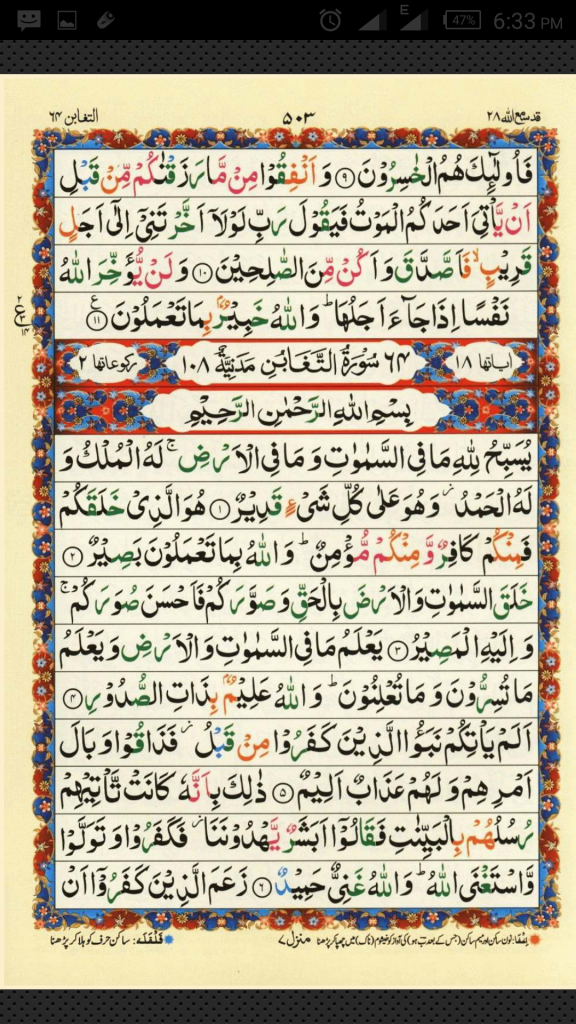 47% 6:33 PM
E
التغابن ٦٤ ٥٠٣ قد سمع الله ٢٨
فَاُولٰٓئِكَ هُمُ الْخٰسِرُوْنَ ۹ وَ اَنْفِقُوْا مِنْ مَّا رَزَقْنٰكُمْ مِّنْ قَبْلِ
اَنْ يَّاْتِيَ اَحَدَكُمُ الْمَوْتُ فَيَقُوْلَ رَبِّ لَوْلَاۤ اَخَّرْتَنِيْۤ اِلٰۤى اَجَلٍ
قَرِيْبٍ ۙ فَاَصَّدَّقَ وَ اَكُنْ مِّنَ الصّٰلِحِيْنَ ۱۰ وَ لَنْ يُّؤَخِّرَ اللّٰهُ
نَفْسًا اِذَا جَآءَ اَجَلُهَا ؕ وَ اللّٰهُ خَبِيْرٌۢ بِمَا تَعْمَلُوْنَ ۱۱ ع
٢ ع ١٤
اٰیاتها ١٨ ٦٤ سُوْرَةُ التَّغَابُنِ مَدَنِيَّةٌ ١٠٨ رکوعاتها ٢
بِسْمِ اللّٰهِ الرَّحْمٰنِ الرَّحِيْمِ
يُسَبِّحُ لِلّٰهِ مَا فِي السَّمٰوٰتِ وَ مَا فِي الْاَرْضِ ۚ لَهُ الْمُلْكُ وَ
لَهُ الْحَمْدُ ؗ وَ هُوَ عَلٰى كُلِّ شَيْءٍ قَدِيْرٌ ۱ هُوَ الَّذِيْ خَلَقَكُمْ
فَمِنْكُمْ كَافِرٌ وَّ مِنْكُمْ مُّؤْمِنٌ ؕ وَ اللّٰهُ بِمَا تَعْمَلُوْنَ بَصِيْرٌ ۲
خَلَقَ السَّمٰوٰتِ وَ الْاَرْضَ بِالْحَقِّ وَ صَوَّرَكُمْ فَاَحْسَنَ صُوَرَكُمْ ۚ
وَ اِلَيْهِ الْمَصِيْرُ ۳ يَعْلَمُ مَا فِي السَّمٰوٰتِ وَ الْاَرْضِ وَ يَعْلَمُ
مَا تُسِرُّوْنَ وَ مَا تُعْلِنُوْنَ ؕ وَ اللّٰهُ عَلِيْمٌۢ بِذَاتِ الصُّدُوْرِ ۴
اَلَمْ يَاْتِكُمْ نَبَؤُا الَّذِيْنَ كَفَرُوْا مِنْ قَبْلُ ؗ فَذَاقُوْا وَبَالَ
اَمْرِهِمْ وَ لَهُمْ عَذَابٌ اَلِيْمٌ ۵ ذٰلِكَ بِاَنَّهٗ كَانَتْ تَّاْتِيْهِمْ
رُسُلُهُمْ بِالْبَيِّنٰتِ فَقَالُوْۤا اَبَشَرٌ يَّهْدُوْنَنَا ؗ فَكَفَرُوْا وَ تَوَلَّوْا
وَّ اسْتَغْنَى اللّٰهُ ؕ وَ اللّٰهُ غَنِيٌّ حَمِيْدٌ ۶ زَعَمَ الَّذِيْنَ كَفَرُوْۤا اَنْ
منزل ٧ قلقله: ساکن حرف کو ہلا کر پڑھنا